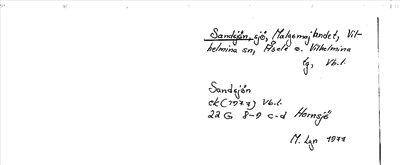 Sandsjön, sjö, Malgomajlandet, Vil-
helmina sn, Åsele o. Vilhelmina
lg, Vb.l.
Sandsjön
ek (1977) Vb.l.
22 G 8-9 c-d Hornsjö
M. Lgn 1977